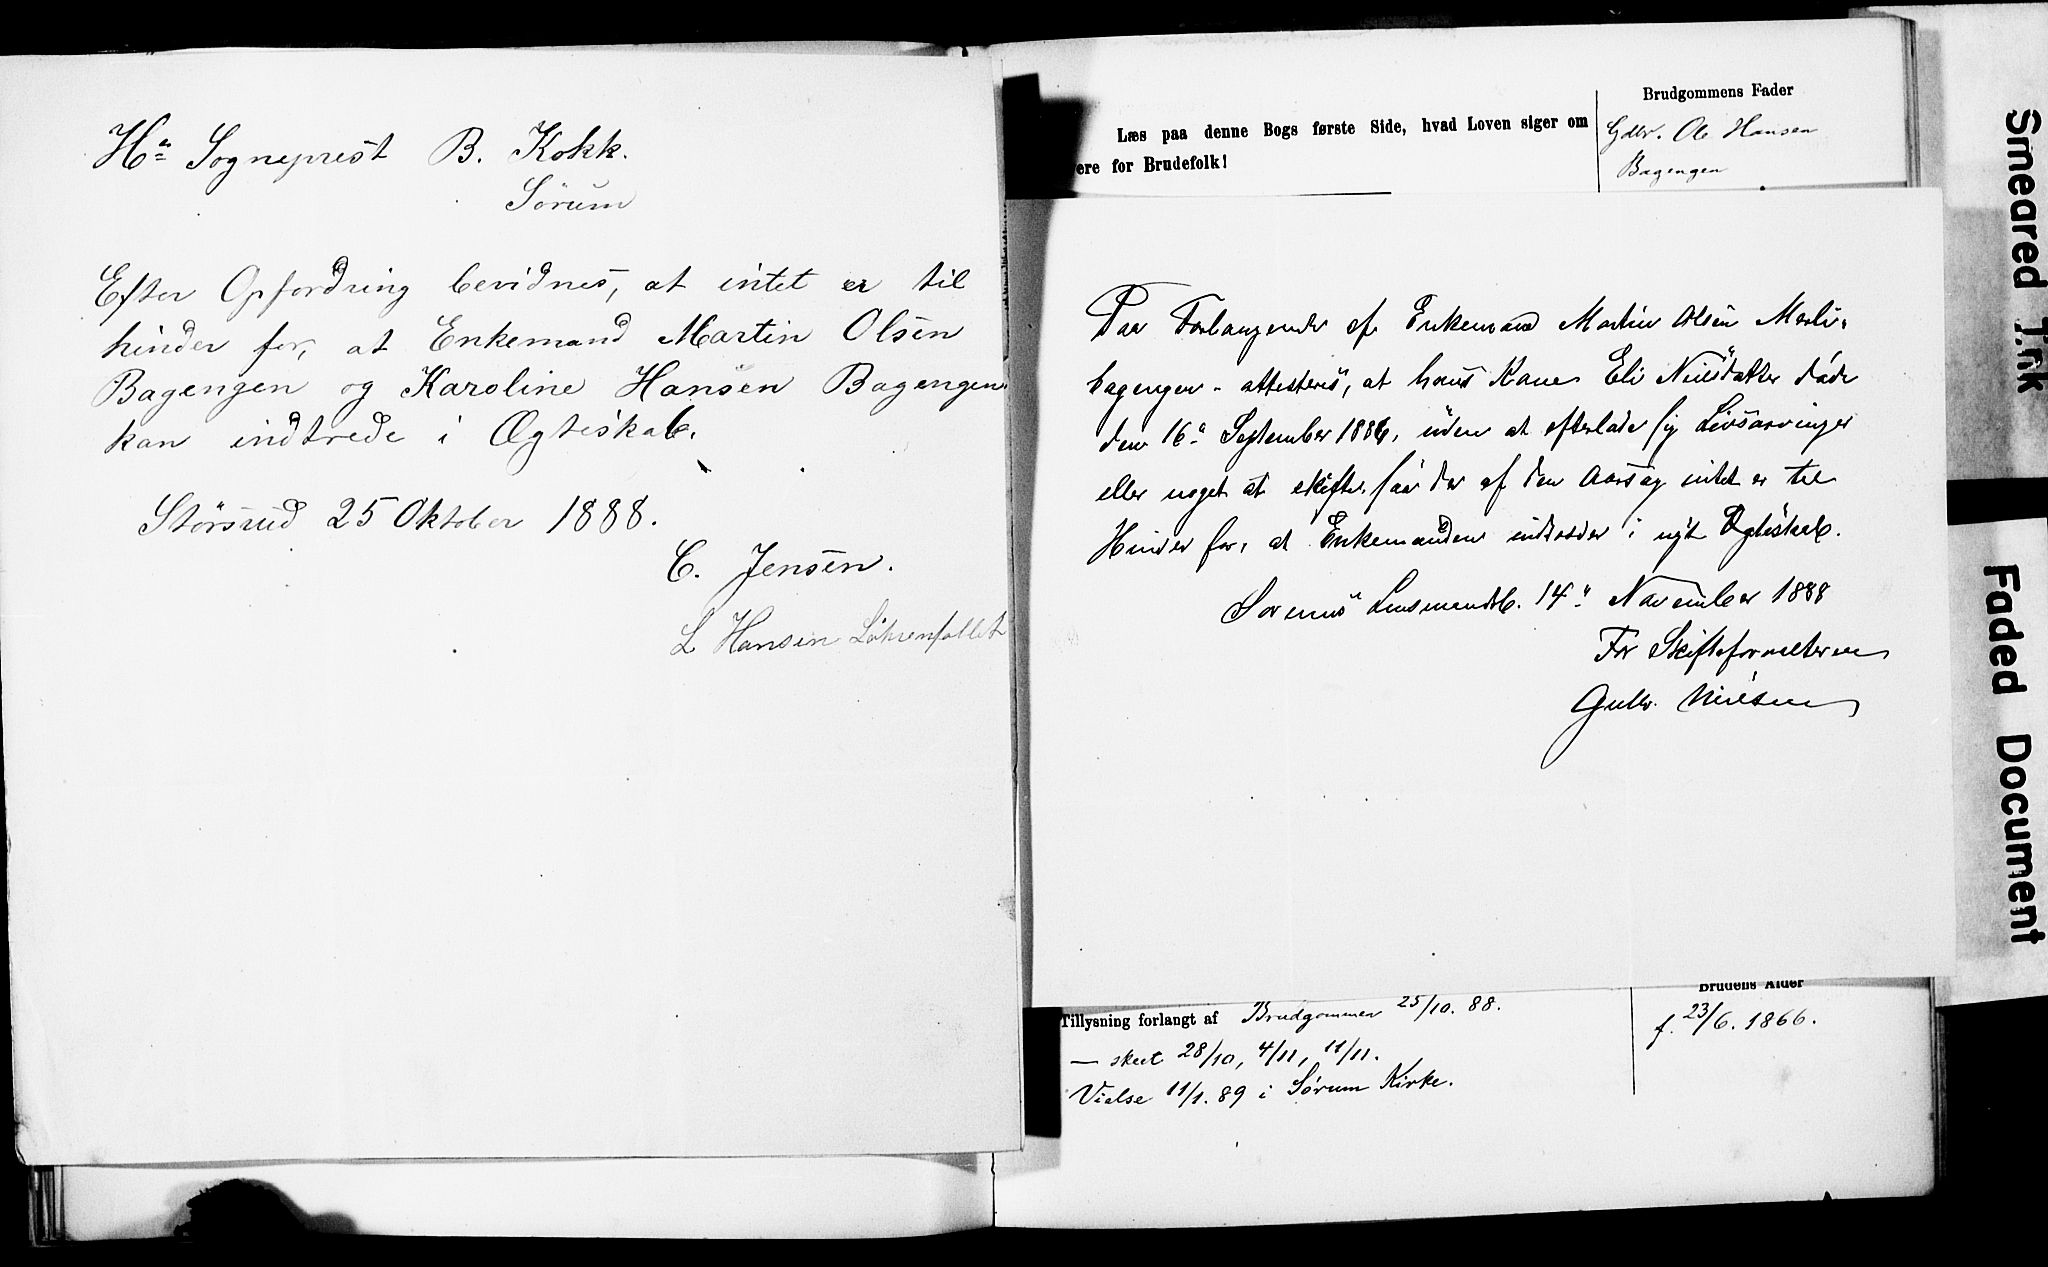 Hr Sogneprest B. Kokk.
Sørum
Efter Opfordring bevidnes, at intet er til
hinder for, at Enkemand Martin Olsen
Bagengen og Karoline Hansen Bagengen
kan indtrede i Ægteskab.
Størsrud 25 Oktober 1888.
C. Jensen.
L Hansen
Læs paa denne Bogs første Side, hvad Loven siger om
ere for Brudefolk!
Brudgommens Fader
Gdbr. Ole Hansen
Bagengen
Paa Forlangende af Enkemand Martin Olsen Merli-
bagengen - attesteres, at hans Kone Eli Nilsdatter døde
den 16de September 1886, uden at efterlade sig Livsarvinger
eller noget at skifte, saa der af den Aarsag intet er til
Hinder for, at Enkemanden indtræder i nyt Egteskab.
Sørums Lensmandsb. 14de November 1888
For Skifteforvalteren
Gulbr. Nielsen
Tillysning forlangt af Brudgommen 25/10. 88.
— skeet 28/10, 4/11, 11/11.
Vielse 11/1. 89 i Sørum Kirke.
Brudens Alder
f. 23/6. 1866.
Smeared Ink
Faded Document